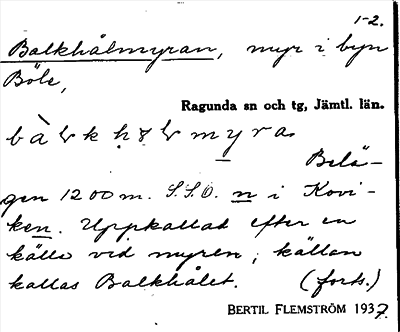 1-2.
Balkhålmyran, myr i byn
Böle,
Ragunda sn och tg, Jämtl. län.
myra
Belä-
gen 1200 m. S.S.O. n i Kovi-
ken. Uppkallad efter en
källa vid myren; källan
kallas Balkhålet. (forts.)
BERTIL FLEMSTRÖM 1937.